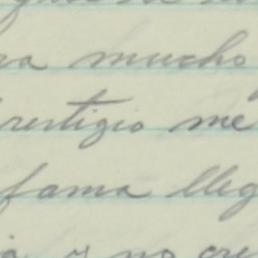 ra mucho
restigio me
fama lleg
y no cre